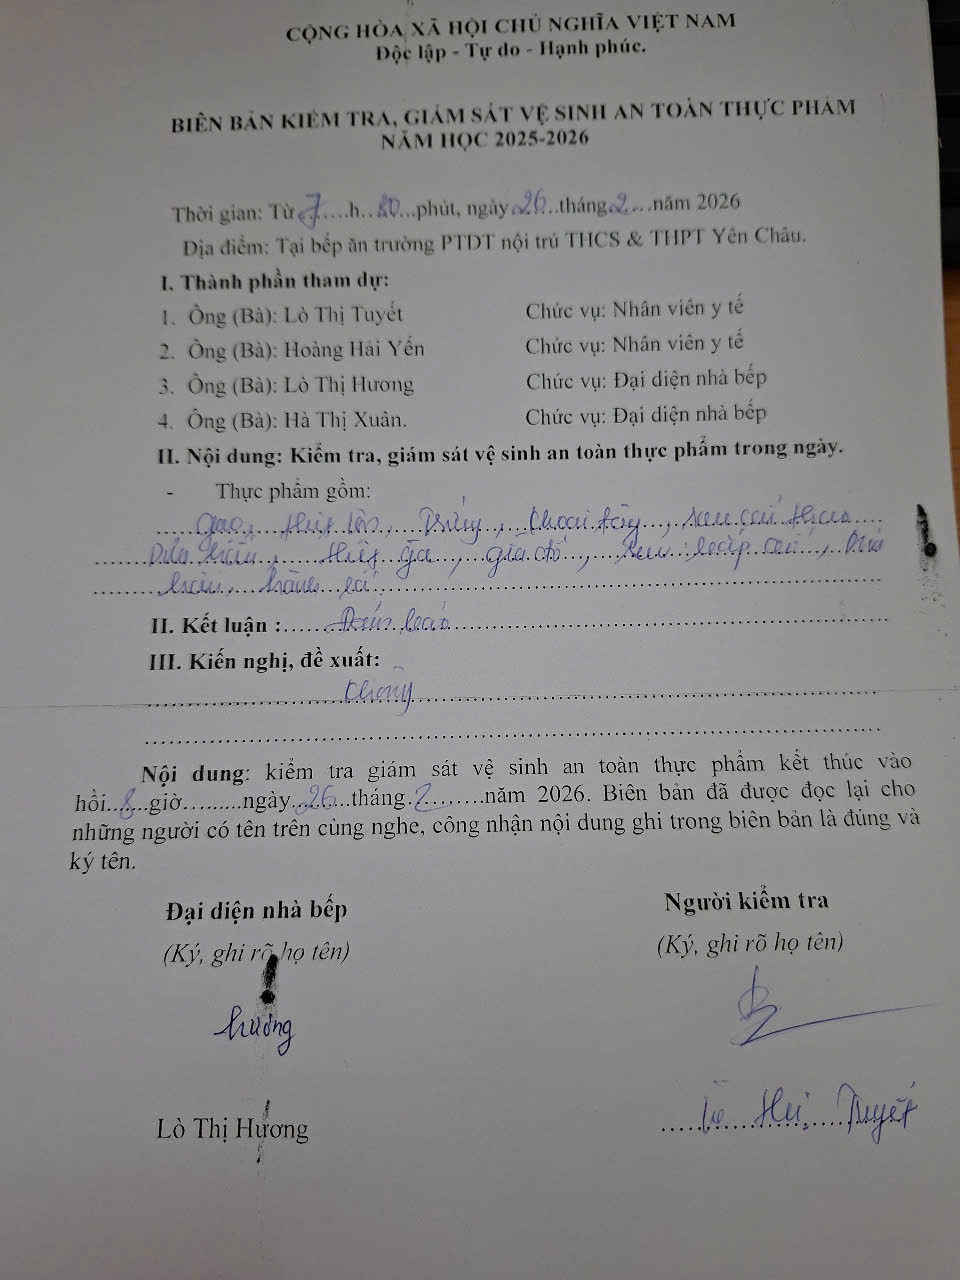 CỘNG HÒA XÃ HỘI CHỦ NGHĨA VIỆT NAM
Độc lập - Tự do - Hạnh phúc.
BIÊN BẢN KIỂM TRA, GIÁM SÁT VỆ SINH AN TOÀN THỰC PHẨM
NĂM HỌC 2025-2026
Thời gian: Từ 7.....h.........phút, ngày 26...tháng 2....năm 2026
Địa điểm: Tại bếp ăn trường PTDT nội trú THCS & THPT Yên Châu.
I. Thành phần tham dự:
1. Ông (Bà): Lò Thị Tuyết Chức vụ: Nhân viên y tế
2. Ông (Bà): Hoàng Hải Yến Chức vụ: Nhân viên y tế
3. Ông (Bà): Lò Thị Hương Chức vụ: Đại diện nhà bếp
4. Ông (Bà): Hà Thị Xuân. Chức vụ: Đại diện nhà bếp
II. Nội dung: Kiểm tra, giám sát vệ sinh an toàn thực phẩm trong ngày.
- Thực phẩm gồm:
Gạo, thịt lợn, Trứng, khoai tây, rau cải
thịt gà, giá đỗ, rau bắp cải,
hành lá
II. Kết luận :
III. Kiến nghị, đề xuất:
Không
Nội dung: kiểm tra giám sát vệ sinh an toàn thực phẩm kết thúc vào
hồi...8....giờ.........ngày...26...tháng.2.......năm 2026. Biên bản đã được đọc lại cho
những người có tên trên cùng nghe, công nhận nội dung ghi trong biên bản là đúng và
ký tên.
Đại diện nhà bếp Người kiểm tra
(Ký, ghi rõ họ tên) (Ký, ghi rõ họ tên)
Hương
Lò Thị Hương Lò Thị Tuyết